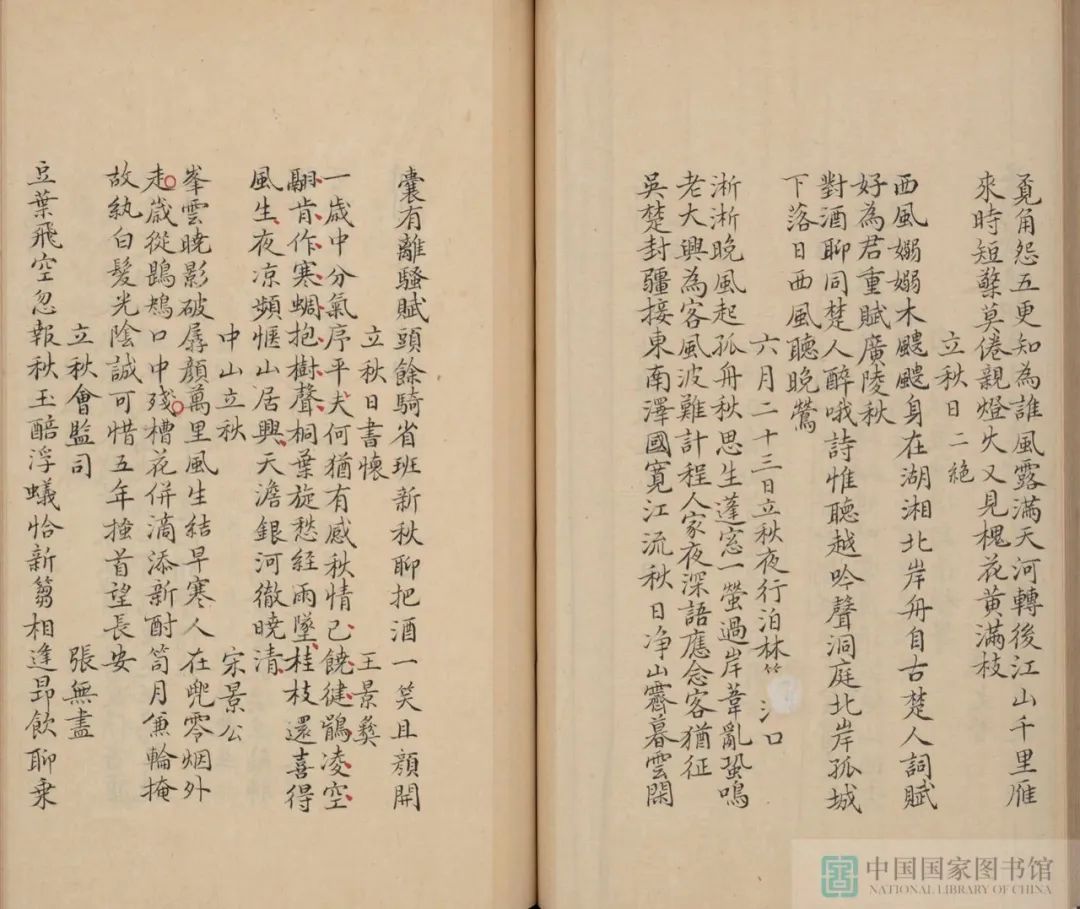 覔角怨五更知為誰風露滿天河轉後江山千里雁
來時短檠莫倦親燈火又見槐花黃滿枝
立秋日二絕
西風嫋嫋木颼颼身在湖湘北岸舟自古楚人詞賦
好為君重賦廣陵秋
對酒聊同楚人醉哦詩惟聽越吟聲洞庭北岸孤城
下落日西風聽晚鶯
六月二十三日立秋夜行泊林口
淅淅晚風起孤舟秋思生蓬窓一螢過岸葦亂蛩鳴
老大興為客風波難計程人家夜深語應念客猶征
吳楚封疆接東南澤國寬江流秋日净山霽暮雲閑
囊有離騷賦頭餘騎省班新秋聊把酒一笑且顔開
立秋日書懷 王景彝
一歲中分氣序平夫何猶有感秋情已饒健鶻凌空
翮肯作寒蜩抱樹聲桐葉旋愁經雨墜桂枝還喜得
風生夜凉頻愜山居興天澹銀河徹曉清
中山立秋 宋景公
峯雲曉影破孱顔萬里風生結早寒人在兜零烟外
走歲從鵾鴂口中殘槽花併滴添新酎笥月兼輪掩
故紈白髮光陰誠可惜五年搔首望長安
立秋會監司 張無盡
豆葉飛空忽報秋玉醅浮蟻恰新篘相逢昻飲聊乘
中国国家图书馆
NATIONAL LIBRARY OF CHINA